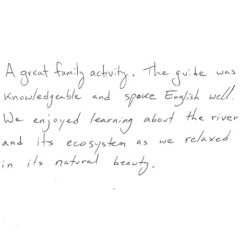 A great family activity. The guide was
knowledgeable and spoke English well.
We enjoyed learning about the river
and its ecosystem as we relaxed
in its natural beauty.